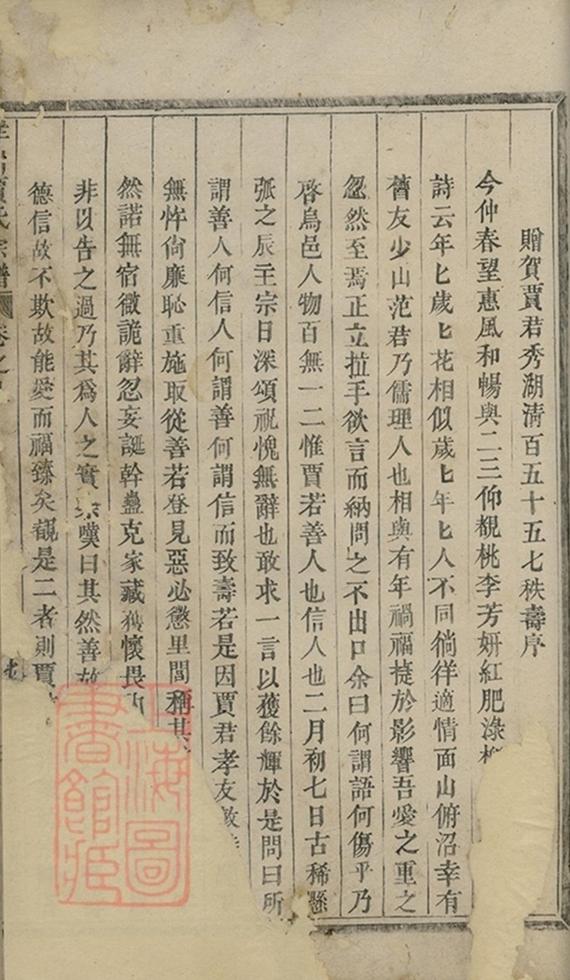 贈賀賈君秀湖淸百五十五七秩壽序
今仲春望惠風和暢與二三仰覩桃李芳妍紅肥淥
詩云年匕歲匕花相似歲匕年匕人不同徜徉適情面山俯沼幸有
舊友少山范君乃儒理人也相與有年禍福㨗於影響吾愛之重之
忽然至焉正立拉手欲言而納問之不出口余曰何謂語何傷乎乃
啓烏邑人物百無一二惟賈若善人也信人也二月初七日古稀懸
弧之辰主宗日深頌祝愧無辭也敢求一言以獲餘輝於是問曰所
謂善人何信人何謂善何謂信而致壽若是因賈君孝友
無忤尙廉恥重施取從善若登見惡必懲里閭稱其
然諾無宿徵詭辭忽妄誕幹蠱克家藏懷畏
非以告之過乃其爲人之實嘆曰其然善故
德信故不欺故能愛而福臻矣觀是二者則賈
賈氏宗譜 卷之
上海圖書館藏